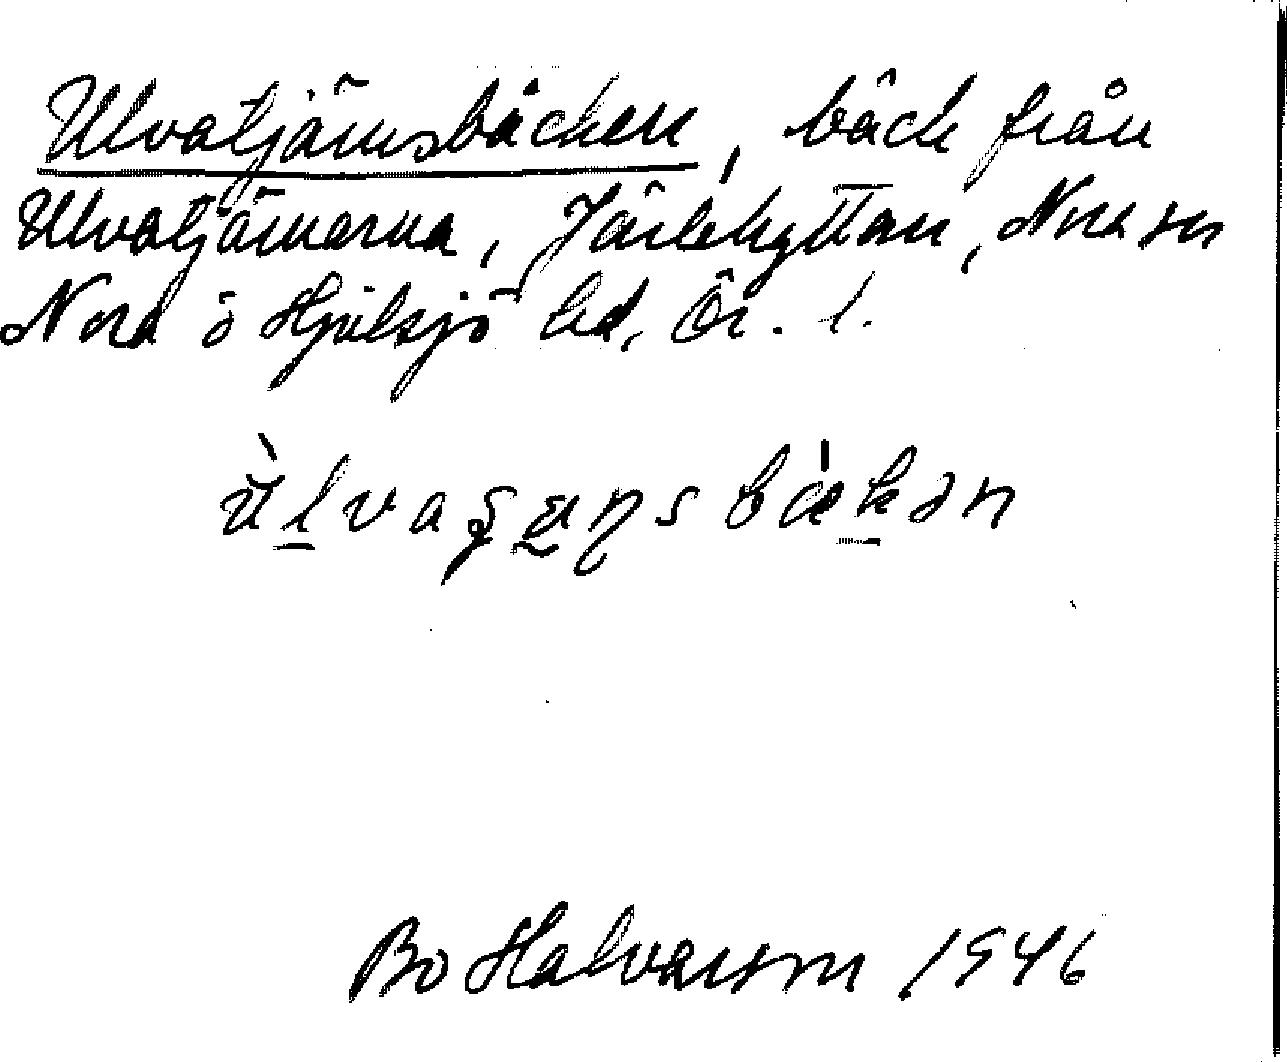 Ulvatjärnsbäcken, bäck från
Ulvatjärnarna, Järlehyttan, Nora sn
Nora o Hjulsjö bd, Ör. l.
Bo Halvarson 1946